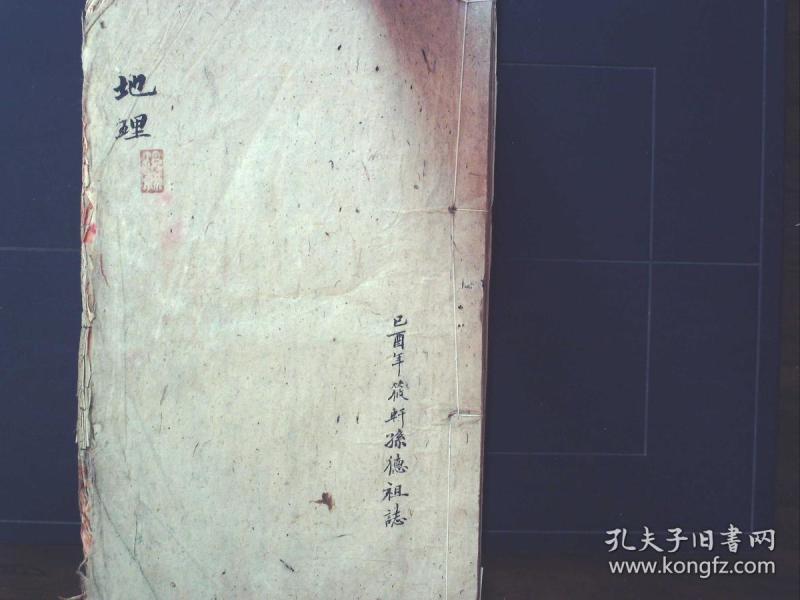 地理
己酉年筱軒孫德祖誌
孔夫子旧書网
www.kongfz.com